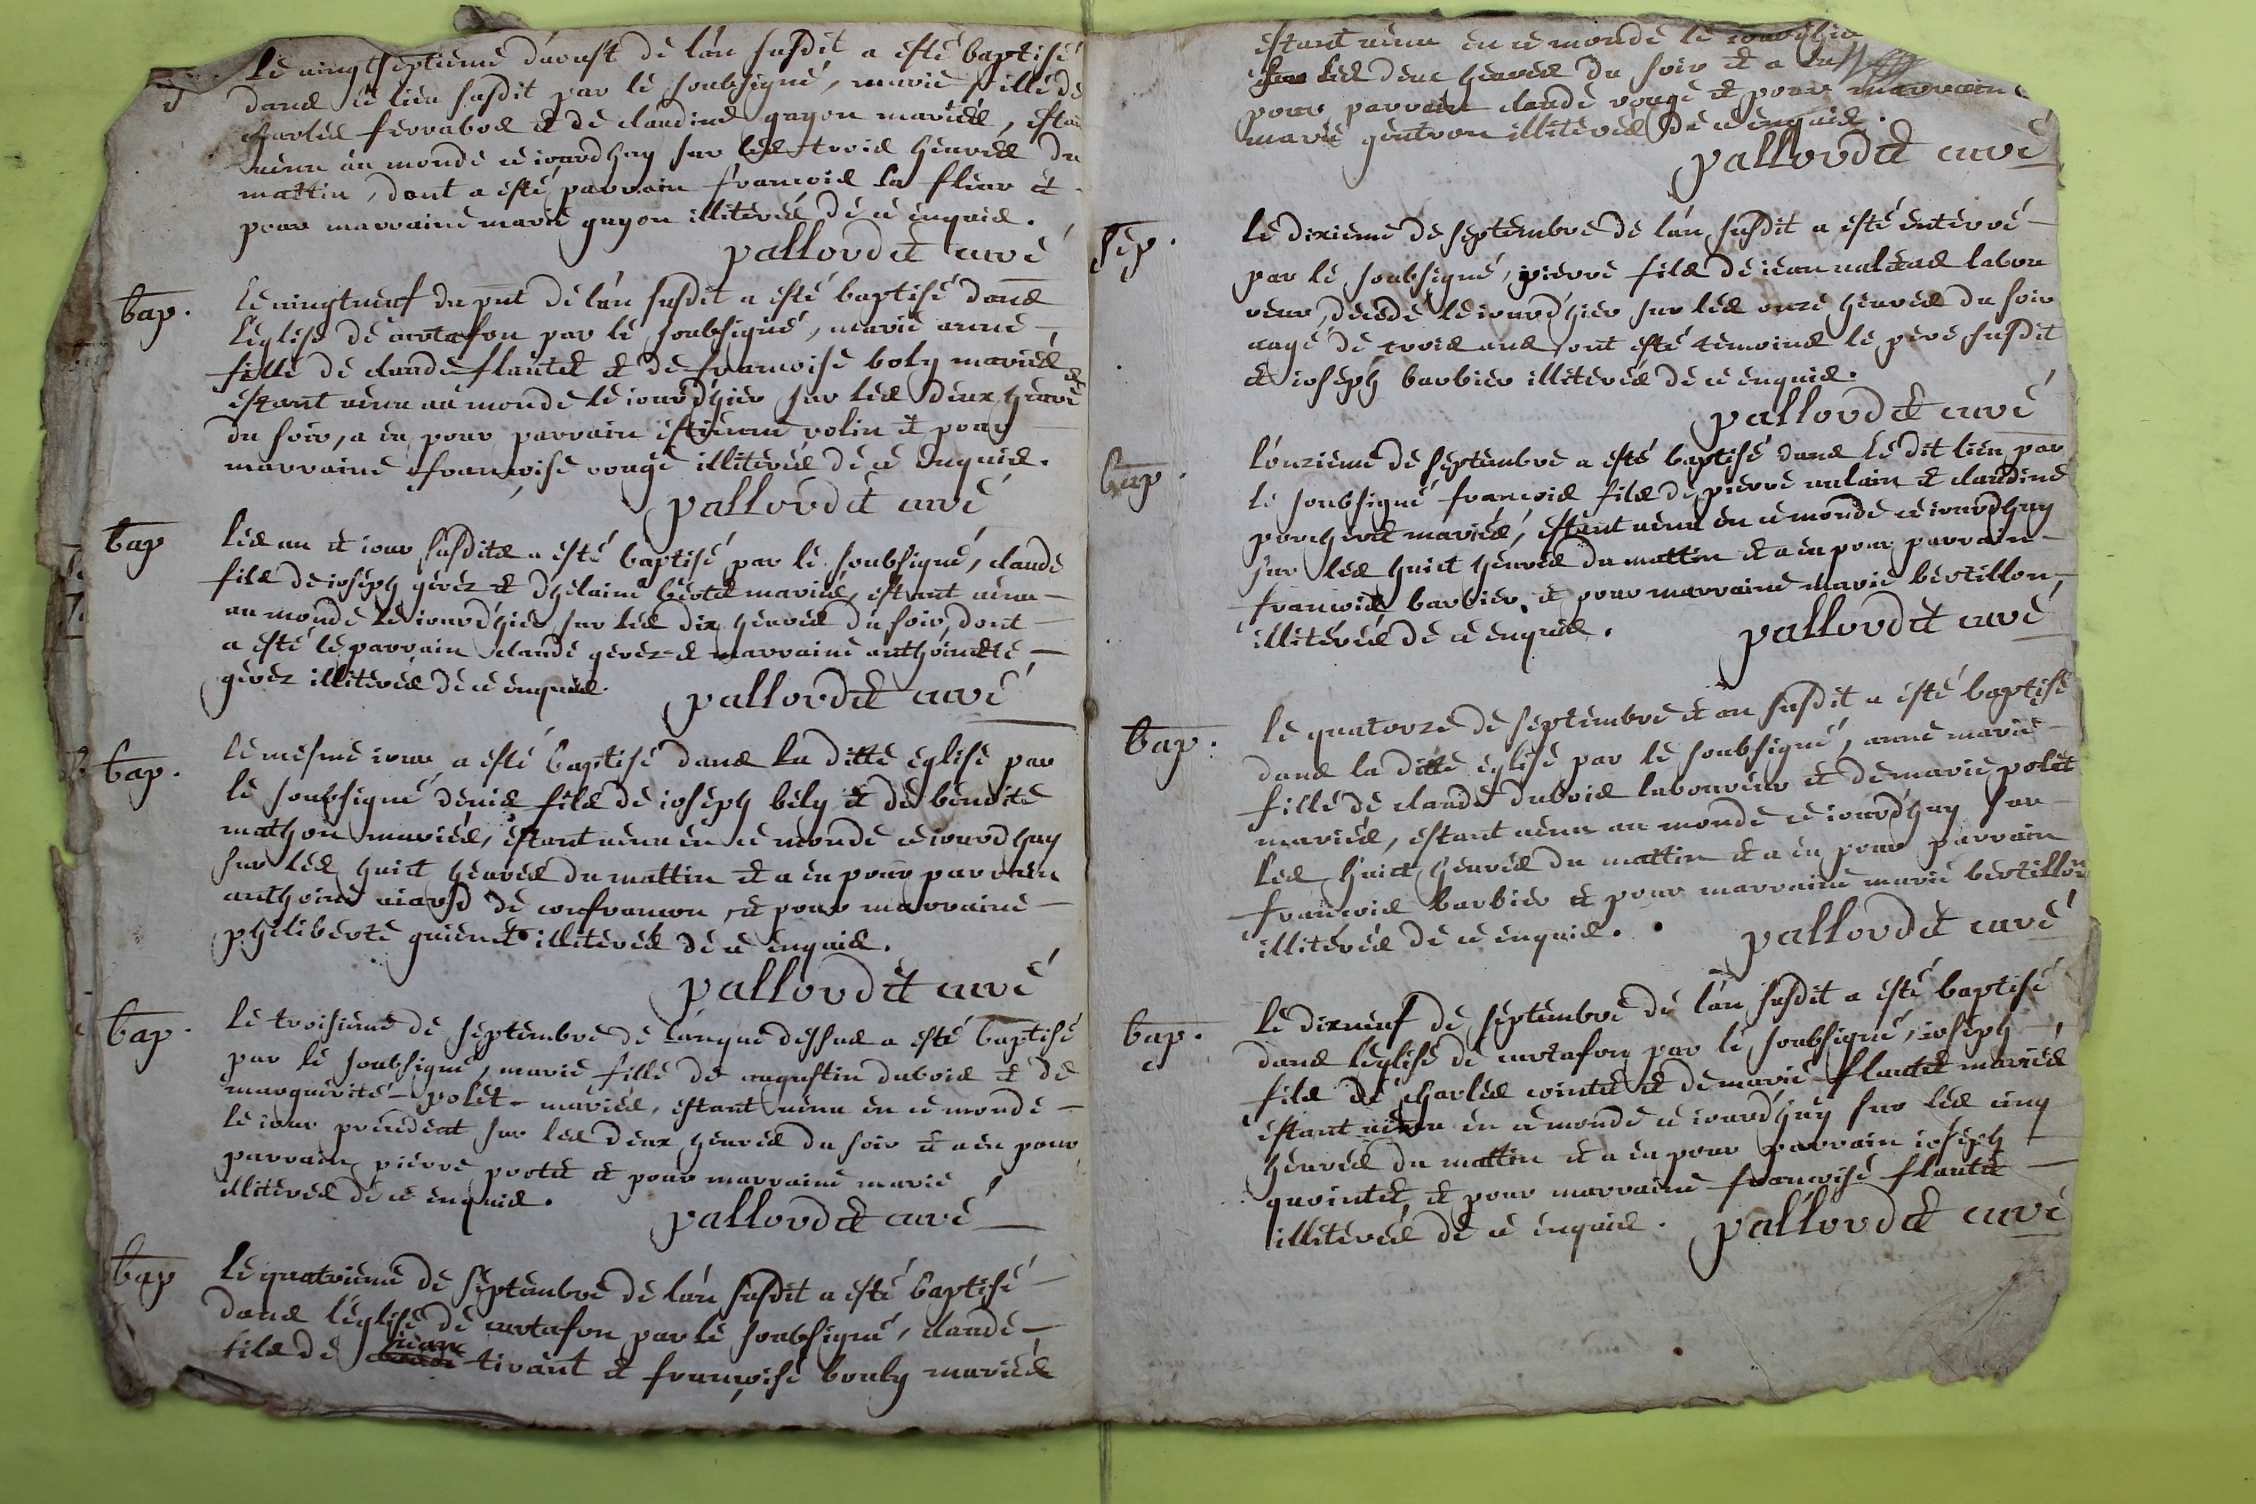 le vingtseptieme d'aoust de l'an susdit a esté baptisé
dans ce lieu susdit par le soubsigné, marie fille de
charles ferrabos et de claudine guyon mariés, estan
venu au monde ce iourdhuy sur les trois heures du
mattin, dont a esté parrain francois la fleur et
pour marraine marie guyon illiterés de ce enquis.
pallordet curé
bap. le vingtneuf du pnt de l'an susdit a esté baptisé dans
l'eglise de curtafon par le soubsigné, marie anne
fille de claude flautet et de francoise boly mariés
estant venu au monde le iourdhier sur les deux heures
du soir, a eu pour parrain estienne rolin et pour
marraine francoise rouge illiterés de ce enquis.
pallordet curé
bap les an et iour susdits a esté baptisé par le soubsigné, claude
fils de ioseph gerez et d'helaine bertet mariés, estant venu
au monde le iourdhier sur les dix heures du soir, dont
a esté le parrain claude gerez et marraine anthoinette
gerez illiterés de ce enquis. pallordet curé
bap. le mesme iour a esté baptisé dans la ditte eglise par
le soubsigné denis fils de ioseph bely et de benoite
mathon mariés, estant venu en ce monde ce iourdhuy
sur les huict heures du mattin et a eu pour parrain
anthoine viard de confrancon, et pour marraine
philiberte guienet illiterés de ce enquis.
pallordet curé
bap. le troisieme de septembre de l'an que dessus a esté baptisé
par le soubsigné, marie fille de augustin dubois et de
marguerite polet mariés, estant venu en ce monde
le iour precedent sur les deux heures du soir et a eu pour
parrain pierre protet et pour marraine marie
illiterés de ce enquis.
pallordet curé
bap le quatrieme de septembre de l'an susdit a esté baptisé
dans l'eglise de curtafon par le soubsigné, claude
fils de iean tirant et françoise bouly mariés
estant venu en ce monde le iourdhier
sur les deux heures du soir et a eu
pour parrain claude rouge et pour marraine
marie gentron illiterés de ce enquis.
pallordet curé
sep. le dixieme de septembre de l'an susdit a esté enterré
par le soubsigné, pierre fils de iean labou
reur, decedé le iourdhier sur les onze heures du soir
aagé de trois ans, ont esté temoins le pere susdit
et ioseph barbier illiterés de ce enquis.
pallordet curé
bap. l'onzieme de septembre a esté baptisé dans le dit lieu par
le soubsigné francois fils de pierre vulain et claudine
porcheret mariés, estant venu en ce monde ce iourdhuy
sur les huict heures du mattin et a eu pour parrain
francois barbier, et pour marraine marie bertillon,
illiterés de ce enquis. pallordet curé
bap. le quatorze de septembre et an susdit a esté baptisé
dans la ditte eglise par le soubsigné, anne marie
fille de claude dubois laboureur et de marie polet
mariés, estant venu au monde ce iourdhuy sur
les huict heures du mattin et a eu pour parrain
francois barbier et pour marraine marie bertillon
illiterés de ce enquis. pallordet curé
bap. le dixneuf de septembre de l'an susdit a esté baptisé
dans l'eglise de curtafon par le soubsigné, ioseph
fils de charles cointet et de marie flautet mariés
estant venu en ce monde ce iourdhuy sur les cinq
heures du mattin et a eu pour parrain ioseph
quointet, et pour marraine francoise flautet
illiterés de ce enquis. pallordet curé